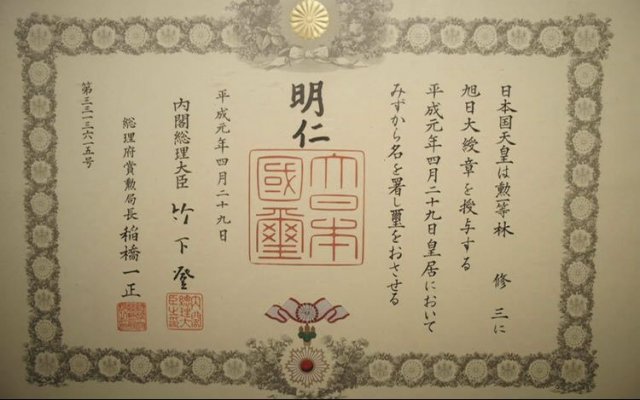 日本国天皇は勲一等林 修三に
旭日大綬章を授与する
平成元年四月二十九日皇居において
みずから名を署し璽をおさせる
明仁
大日本國璽
平成元年四月二十九日
内閣総理大臣 竹下登
内閣總理大臣之章
総理府賞勲局長 稲橋一正
第三三一三六一五号